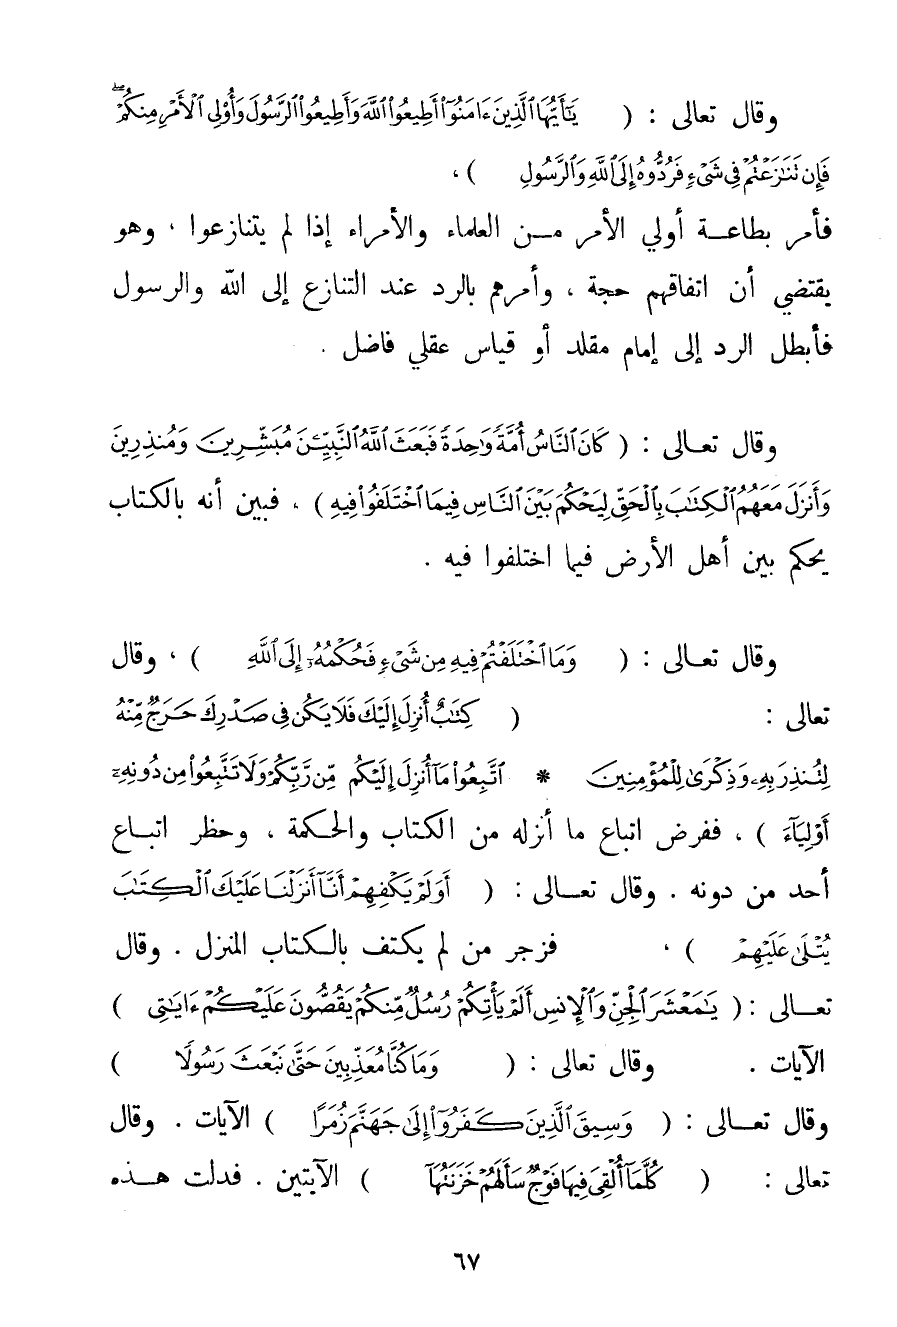 وقال تعالى : ( يَٰٓأَيُّهَا ٱلَّذِينَ ءَامَنُوٓا۟ أَطِيعُوا۟ ٱللَّهَ وَأَطِيعُوا۟ ٱلرَّسُولَ وَأُو۟لِى ٱلْأَمْرِ مِنكُمْ ۖ
فَإِن تَنَٰزَعْتُمْ فِى شَىْءٍ فَرُدُّوهُ إِلَى ٱللَّهِ وَٱلرَّسُولِ ) ،
فأمر بطاعـة أولي الأمر مـن العلماء والأمراء إذا لم يتنازعوا ، وهو
يقتضي أن اتفاقهم حجة ، وأمرهم بالرد عند التنازع إلى الله والرسول
فأبطل الرد إلى إمام مقلد أو قياس عقلي فاضل .
وقال تعـالى : ( كَانَ ٱلنَّاسُ أُمَّةً وَٰحِدَةً فَبَعَثَ ٱللَّهُ ٱلنَّبِيِّـۧنَ مُبَشِّرِينَ وَمُنذِرِينَ
وَأَنزَلَ مَعَهُمُ ٱلْكِتَٰبَ بِٱلْحَقِّ لِيَحْكُمَ بَيْنَ ٱلنَّاسِ فِيمَا ٱخْتَلَفُوا۟ فِيهِ ) ، فبين أنه بالكتاب
يحكم بين أهل الأرض فيما اختلفوا فيه .
وقال تعـالى : ( وَمَا ٱخْتَلَفْتُمْ فِيهِ مِن شَىْءٍ فَحُكْمُهُۥٓ إِلَى ٱللَّهِ ) ، وقال
تعالى : ( كِتَٰبٌ أُنزِلَ إِلَيْكَ فَلَا يَكُن فِى صَدْرِكَ حَرَجٌ مِّنْهُ
لِتُنذِرَ بِهِۦ وَذِكْرَىٰ لِلْمُؤْمِنِينَ * ٱتَّبِعُوا۟ مَآ أُنزِلَ إِلَيْكُم مِّن رَّبِّكُمْ وَلَا تَتَّبِعُوا۟ مِن دُونِهِۦٓ
أَوْلِيَآءَ ) ، ففرض اتباع ما أنزله من الكتاب والحكمة ، وحظر اتبـاع
أحد من دونه . وقال تعـالى : ( أَوَلَمْ يَكْفِهِمْ أَنَّآ أَنزَلْنَا عَلَيْكَ ٱلْكِتَٰبَ
يُتْلَىٰ عَلَيْهِمْ ) ، فزجر من لم يكتف بالكتاب المنزل . وقال
تعـالى : ( يَٰمَعْشَرَ ٱلْجِنِّ وَٱلْإِنسِ أَلَمْ يَأْتِكُمْ رُسُلٌ مِّنكُمْ يَقُصُّونَ عَلَيْكُمْ ءَايَٰتِى )
الآيات . وقال تعالى : ( وَمَا كُنَّا مُعَذِّبِينَ حَتَّىٰ نَبْعَثَ رَسُولًا )
وقال تعـالى : ( وَسِيقَ ٱلَّذِينَ كَفَرُوٓا۟ إِلَىٰ جَهَنَّمَ زُمَرًا ) الآيات . وقال
تعالى : ( كُلَّمَآ أُلْقِىَ فِيهَا فَوْجٌ سَأَلَهُمْ خَزَنَتُهَآ ) الآيتين . فدلت هـذه
٦٧